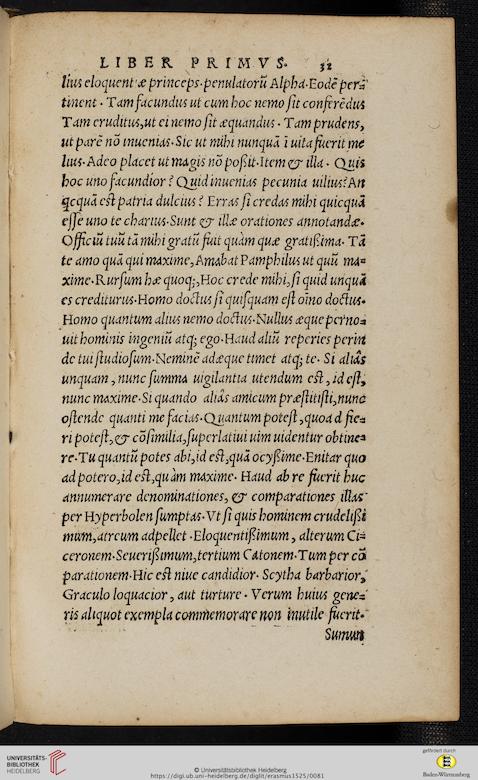 LIBER PRIMVS. 32
lius eloquentæ princeps. penulatorū Alpha. Eodē per=
tinent. Tam facundus ut cum hoc nemo sit conferēdus
Tam eruditus, ut ei nemo sit æquandus. Tam prudens,
ut parē nō inuenias. Sic ut mihi nunquā ī uita fuerit me
lius. Adeo placet ut magis nō poßit. Item & illa. Quis
hoc uno facundior? Quid inuenias pecunia uilius? An
qcquā est patria dulcius? Erras si credas mihi quicquā
esse uno te charius. Sunt & illæ orationes annotandæ.
Officiū tuū tā mihi gratū fuit quàm quæ gratißima. Tā
te amo quā qui maxime, Amabat Pamphilus ut quū ma=
xime. Rursum hæ quoq;, Hoc crede mihi, si quid unquā
es crediturus. Homo doctus si quisquam est oīno doctus.
Homo quantum alius nemo doctus. Nullus æque perno=
uit hominis ingeniū atq; ego. Haud aliū reperies perin
de tui studiosum. Neminē adæque timet atq; te. Si aliâs
unquam, nunc summa uigilantia utendum est, id est,
nunc maxime. Si quando aliâs amicum præstitisti, nunc
ostende quanti me facias. Quantum potest, quoad fie=
ri potest, & cōsimilia, superlatiui uim uidentur obtine=
re. Tu quantū potes abi, id est, quā ocyßime. Enitar quo
ad potero, id est, quàm maxime. Haud ab re fuerit huc
annumerare denominationes, & comparationes illas
per Hyperbolen sumptas. Vt si quis hominem crudelißi
mum, atreum adpellet. Eloquentißimum, alterum Ci=
ceronem. Seuerißimum, tertium Catonem. Tum per cō
parationem. Hic est niue candidior. Scytha barbarior,
Graculo loquacior, aut turture. Verum huius gene=
ris aliquot exempla commemorare non inutile fuerit.
Sumun
UNIVERSITÄTS-
BIBLIOTHEK
HEIDELBERG
© Universitätsbibliothek Heidelberg
https://digi.ub.uni-heidelberg.de/diglit/erasmus1525/0081
gefördert durch
Baden-Württemberg